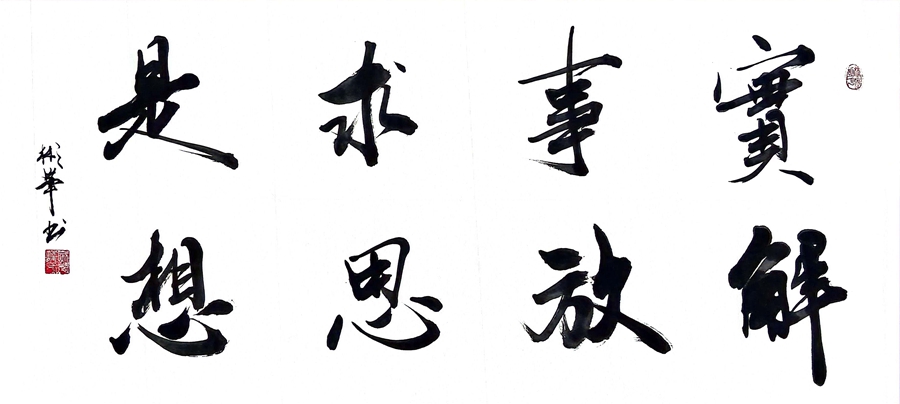 實事求是
解放思想
彬華书